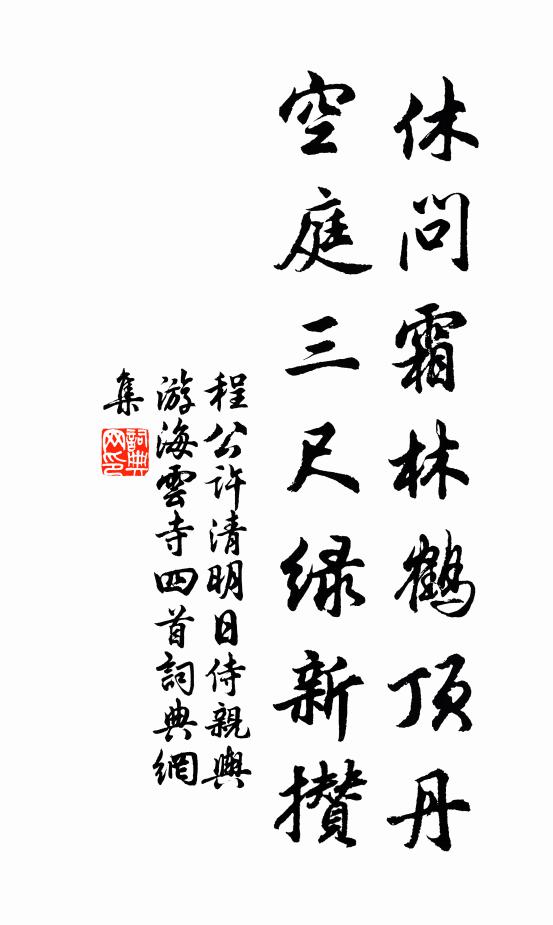 休問霜林鶴頂丹
空庭三尺緑新攅
程公許清明日侍親輿
游海雲寺四首詞典網
集
詞典
网印